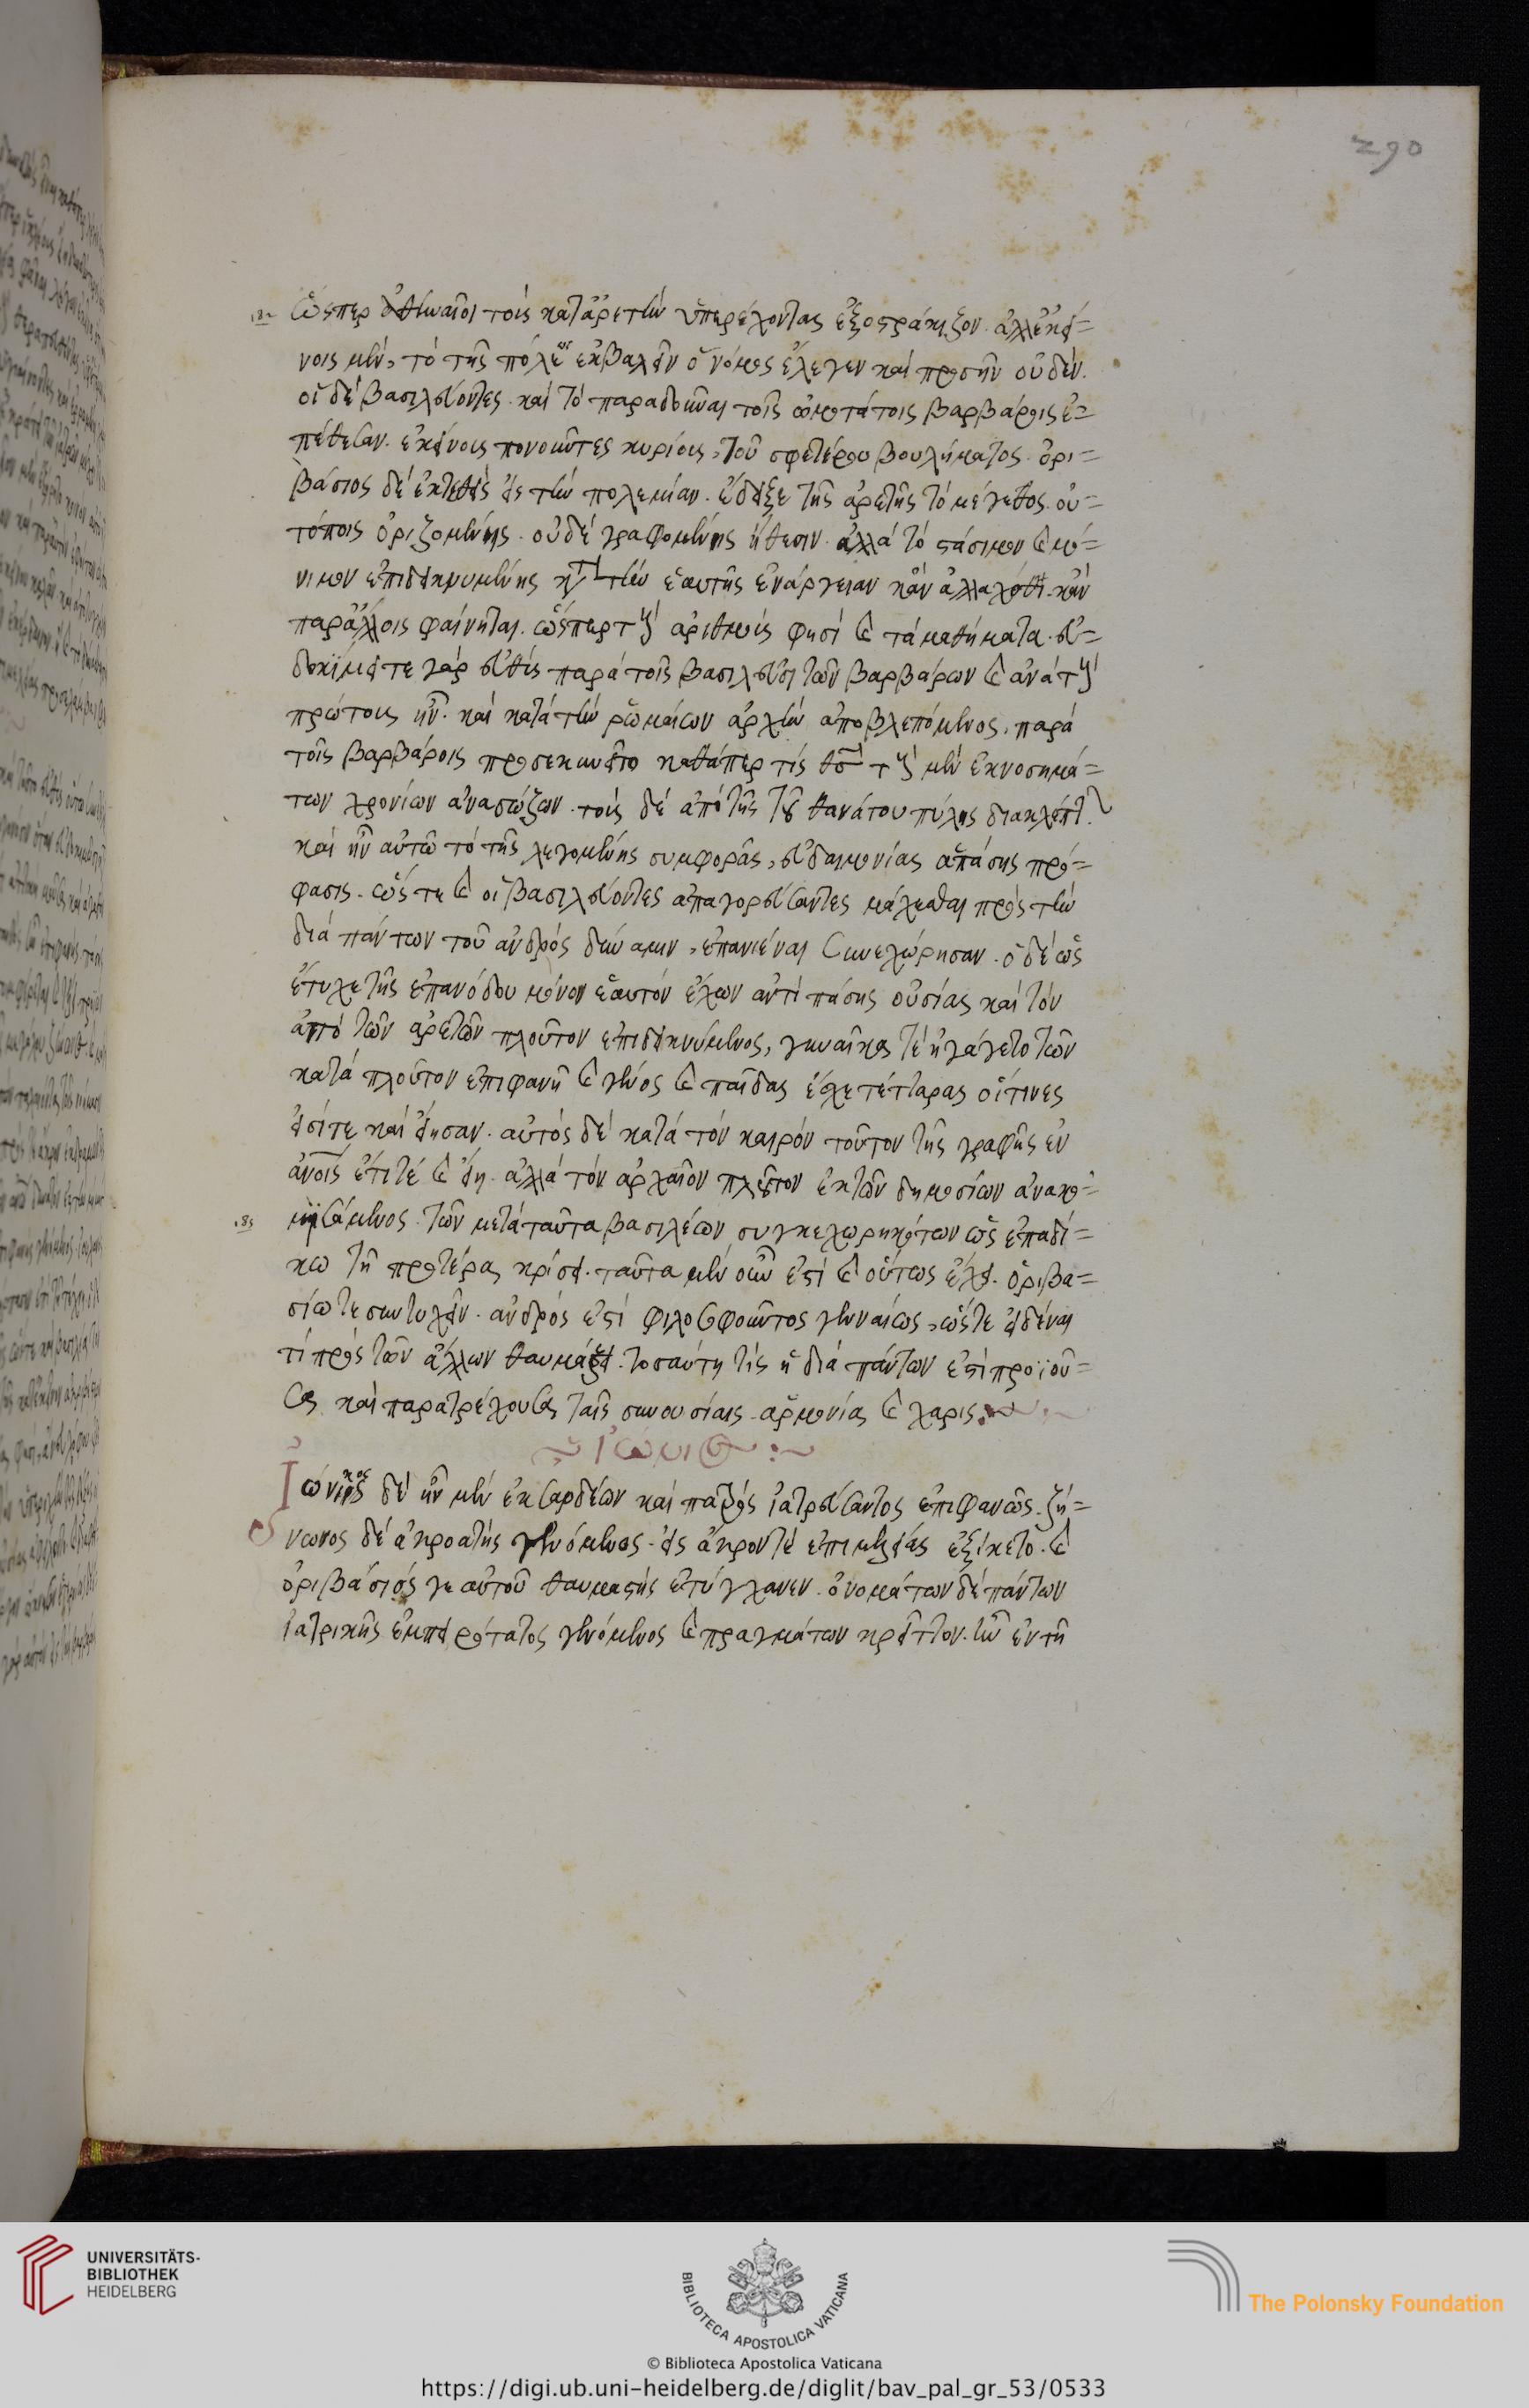 290
182 ὥσπερ ἀθηναῖοι τοὺς κατἀρετὴν ὑπερέχοντας ἐξοστράκιζον. ἀλλἐκεί=
νοις μὲν, τὸ τῆς πόλεως ἐκβαλεῖν ὁ νόμος ἔλεγεν καὶ προσῆν οὐδέν.
οἱ δὲ βασιλεύοντες. καὶ τὸ παραδοῦναι τοῖς ὠμοτάτοις βαρβάροις ἐ=
πέθεσαν. ἐκείνοις ποιοῦντες κυρίους, τοῦ σφετέρου βουλήματος. ὀρι=
βάσιος δὲ ἐκτεθεὶς εἰς τὴν πολεμίαν. ἔδειξε τῆς ἀρετῆς τὸ μέγεθος. οὐ=
τόποις ὁριζομένης. οὐδὲ γραφομένης ἤθεσιν. ἀλλὰ τὸ στάσιμον καὶ μό=
νιμον ἐπιδεικνυμένης κατὰ τὴν ἑαυτῆς ἐνάργειαν κἂν ἀλλαχόθι. κἂν
παρἄλλοις φαίνηται. ὥσπερ τοὺς ἀριθμούς φησὶ καὶ τὰ μαθήματα. εὐ=
δοκίμει τε γὰρ εὐθὺς παρὰ τοῖς βασιλεῦσι τῶν βαρβάρων καὶ ἀνὰ τοὺς
πρώτους ἦν. καὶ κατὰ τὴν ῥωμαίων ἀρχὴν ἀποβλεπόμενος, παρὰ
τοῖς βαρβάροις προσεκυνεῖτο καθάπερ τίς θσ τοὺς μὲν ἐκ νοσημά=
των χρονίων ἀνασώζων. τοὺς δὲ ἀπὸ τῆς τοῦ θανάτου πύλης διακλέπτων.
καὶ ἦν αὐτῶ τὸ τῆς λεγομένης συμφορᾶς, εὐδαιμονίας ἁπάσης πρό=
φασις. ὥστε καὶ οἱ βασιλεύοντες ἀπαγορεύσαντες μάχεσθαι πρὸς τὴν
διὰ πάντων τοῦ ἀνδρὸς δύναμιν, ἐπανιέναι συνεχώρησαν. ὁ δὲ ὡς
ἔτυχε τῆς ἐπανόδου μόνον ἑαυτὸν ἔχων ἀντὶ πάσης οὐσίας καὶ τὸν
ἀπὸ τῶν ἀρετῶν πλοῦτον ἐπιδεικνύμενος, γυναῖκα τὲ ἠγάγετο τῶν
κατὰ πλοῦτον ἐπιφανῆ καὶ γένος καὶ παῖδας ἔσχε τέτταρας οἵτινες
εἰσί τε καὶ εἴησαν. αὐτὸς δὲ κατὰ τὸν καιρὸν τοῦτον τῆς γραφῆς ἐν
ἀνοις ἔτι τέ καὶ εἴη. ἀλλὰ τὸν ἀρχαῖον πλοῦτον ἐκ τῶν δημοσίων ἀνακο=
183 μισάμενος. τῶν μετὰ ταῦτα βασιλέων συγκεχωρηκότων ὡς ἐπαδί=
κω τῆ προτέρας κρίσει. ταῦτα μὲν οὖν ἐστὶ καὶ οὕτως ἔχει. ὀριβα=
σίω τε συντυχεῖν. ἀνδρός ἐστι φιλοσοφοῦντος γενναίως, ὥστε εἰδέναι
τί πρὸς τῶν ἄλλων θαυμάζει. τοσαύτη τίς ἡ διὰ πάντων ἐστὶ προϊοῦ=
σα καὶ παρατρέχουσα ταῖς συνουσίαις. ἁρμονίας καὶ χάρις.
ἰώνικος
Ἰώνικος δὲ ἦν μὲν ἐκ σαρδέων καὶ πατρὸς ἰατρεύσαντος ἐπιφανῶς. ζή=
νωνος δὲ ἀκροατὴς γενόμενος. εἰς ἄκρον τὲ ἐπιμελείας ἐξίκετο. καὶ
ὀριβάσιός γε αὐτοῦ θαυμαστὴς ἐτύγχανεν. ὀνομάτων δὲ πάντων
ἰατρικῆς ἐμπειρότατος γενόμενος καὶ πραγμάτων κρεῖττον. ἦν ἐν τῆ
UNIVERSITÄTS-
BIBLIOTHEK
HEIDELBERG
BIBLIOTECA APOSTOLICA VATICANA
The Polonsky Foundation
© Biblioteca Apostolica Vaticana
https://digi.ub.uni-heidelberg.de/diglit/bav_pal_gr_53/0533